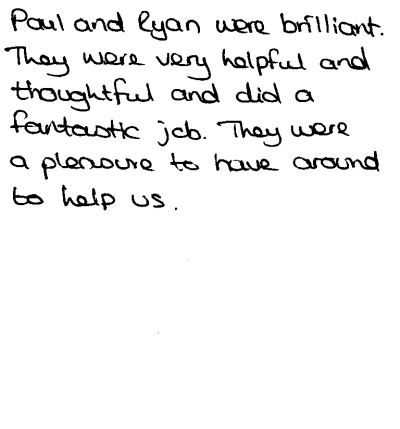 Paul and Ryan were brilliant.
They were very helpful and
thoughtful and did a
fantastic job. They were
a pleasure to have around
to help us.